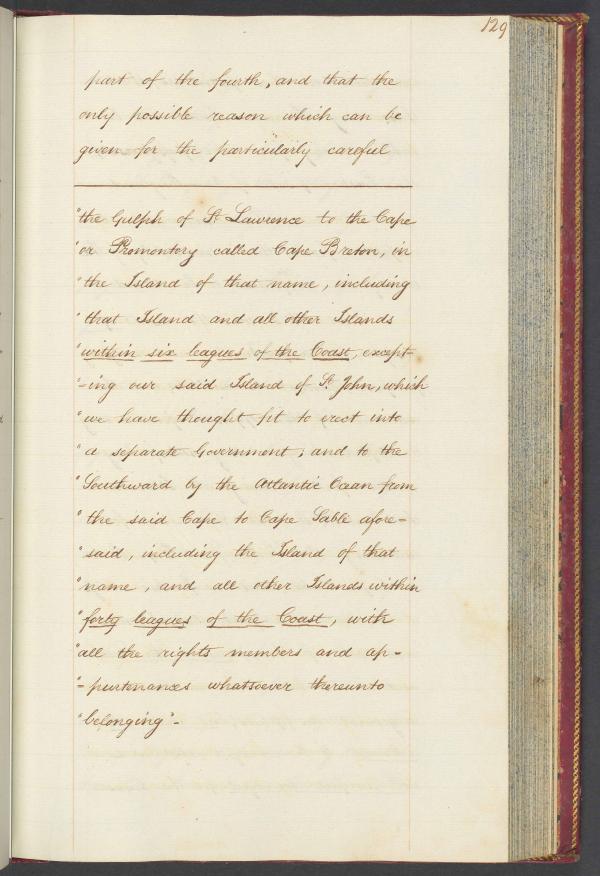 129
part of the fourth, and that the
only possible reason which can be
given for the particularly careful
"the Gulph of St Lawrence to the Cape
"or Promontory called Cape Breton, in
"the Island of that name, including
"that Island and all other Islands
"within six leagues of the Coast, except-
"-ing our said Island of St. John, which
"we have thought fit to erect into
"a separate Government; and to the
"Southward by the Atlantic Ocean from
"the said Cape to Cape Sable afore-
"said, including the Island of that
"name, and all other Islands within
"forty leagues of the Coast, with
"all the rights members and ap-
"-purtenances whatsoever thereunto
"belonging"-